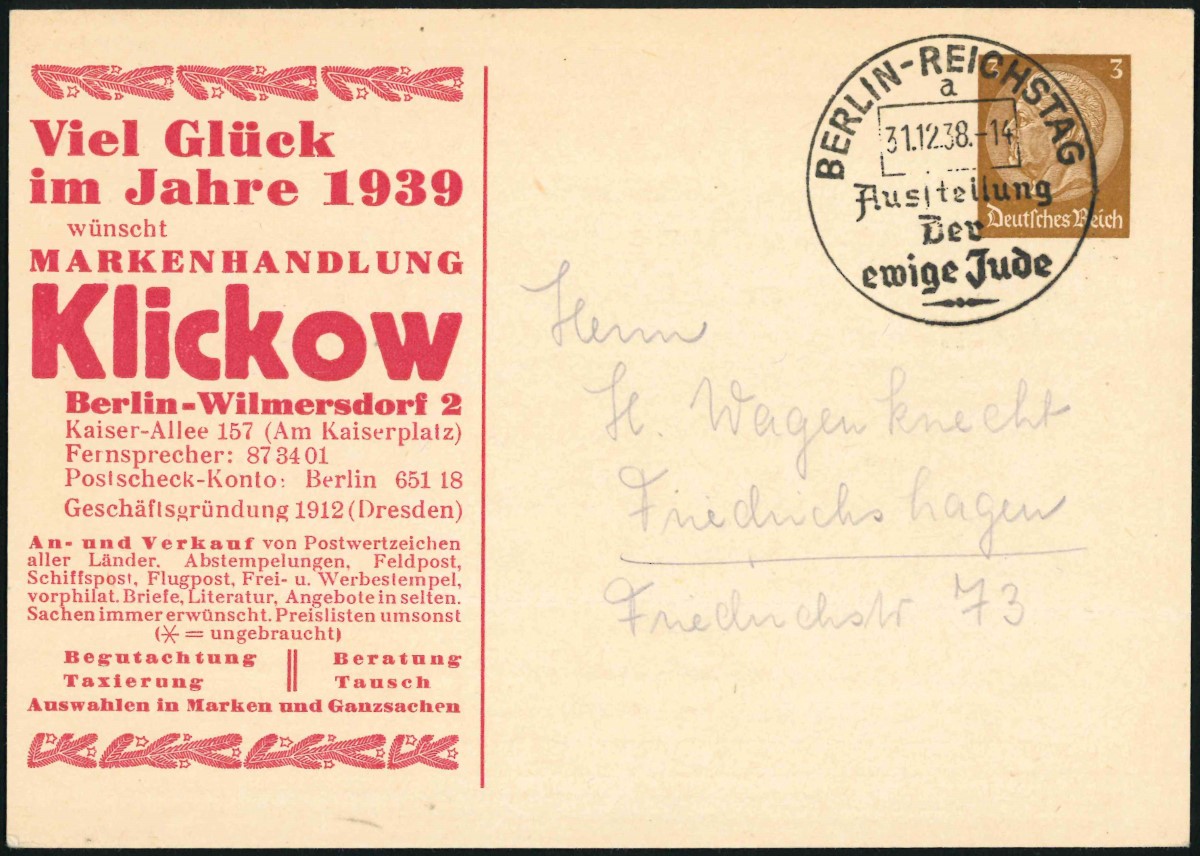 Viel Glück
im Jahre 1939
wünscht
MARKENHANDLUNG
Klickow
Berlin-Wilmersdorf 2
Kaiser-Allee 157 (Am Kaiserplatz)
Fernsprecher: 87 34 01
Postscheck-Konto: Berlin 651 18
Geschäftsgründung 1912 (Dresden)
An- und Verkauf von Postwertzeichen
aller Länder. Abstempelungen, Feldpost,
Schiffspost, Flugpost, Frei- u. Werbestempel,
vorphilat. Briefe, Literatur, Angebote in selten.
Sachen immer erwünscht. Preislisten umsonst
(✳ = ungebraucht)
Begutachtung || Beratung
Taxierung || Tausch
Auswahlen in Marken und Ganzsachen
BERLIN-REICHSTAG
a
31.12.38.-14
Ausstellung
Der
ewige Jude
3
Deutsches Reich
Herrn
H. Wagenknecht
Friedrichshagen
Friedrichstr 73